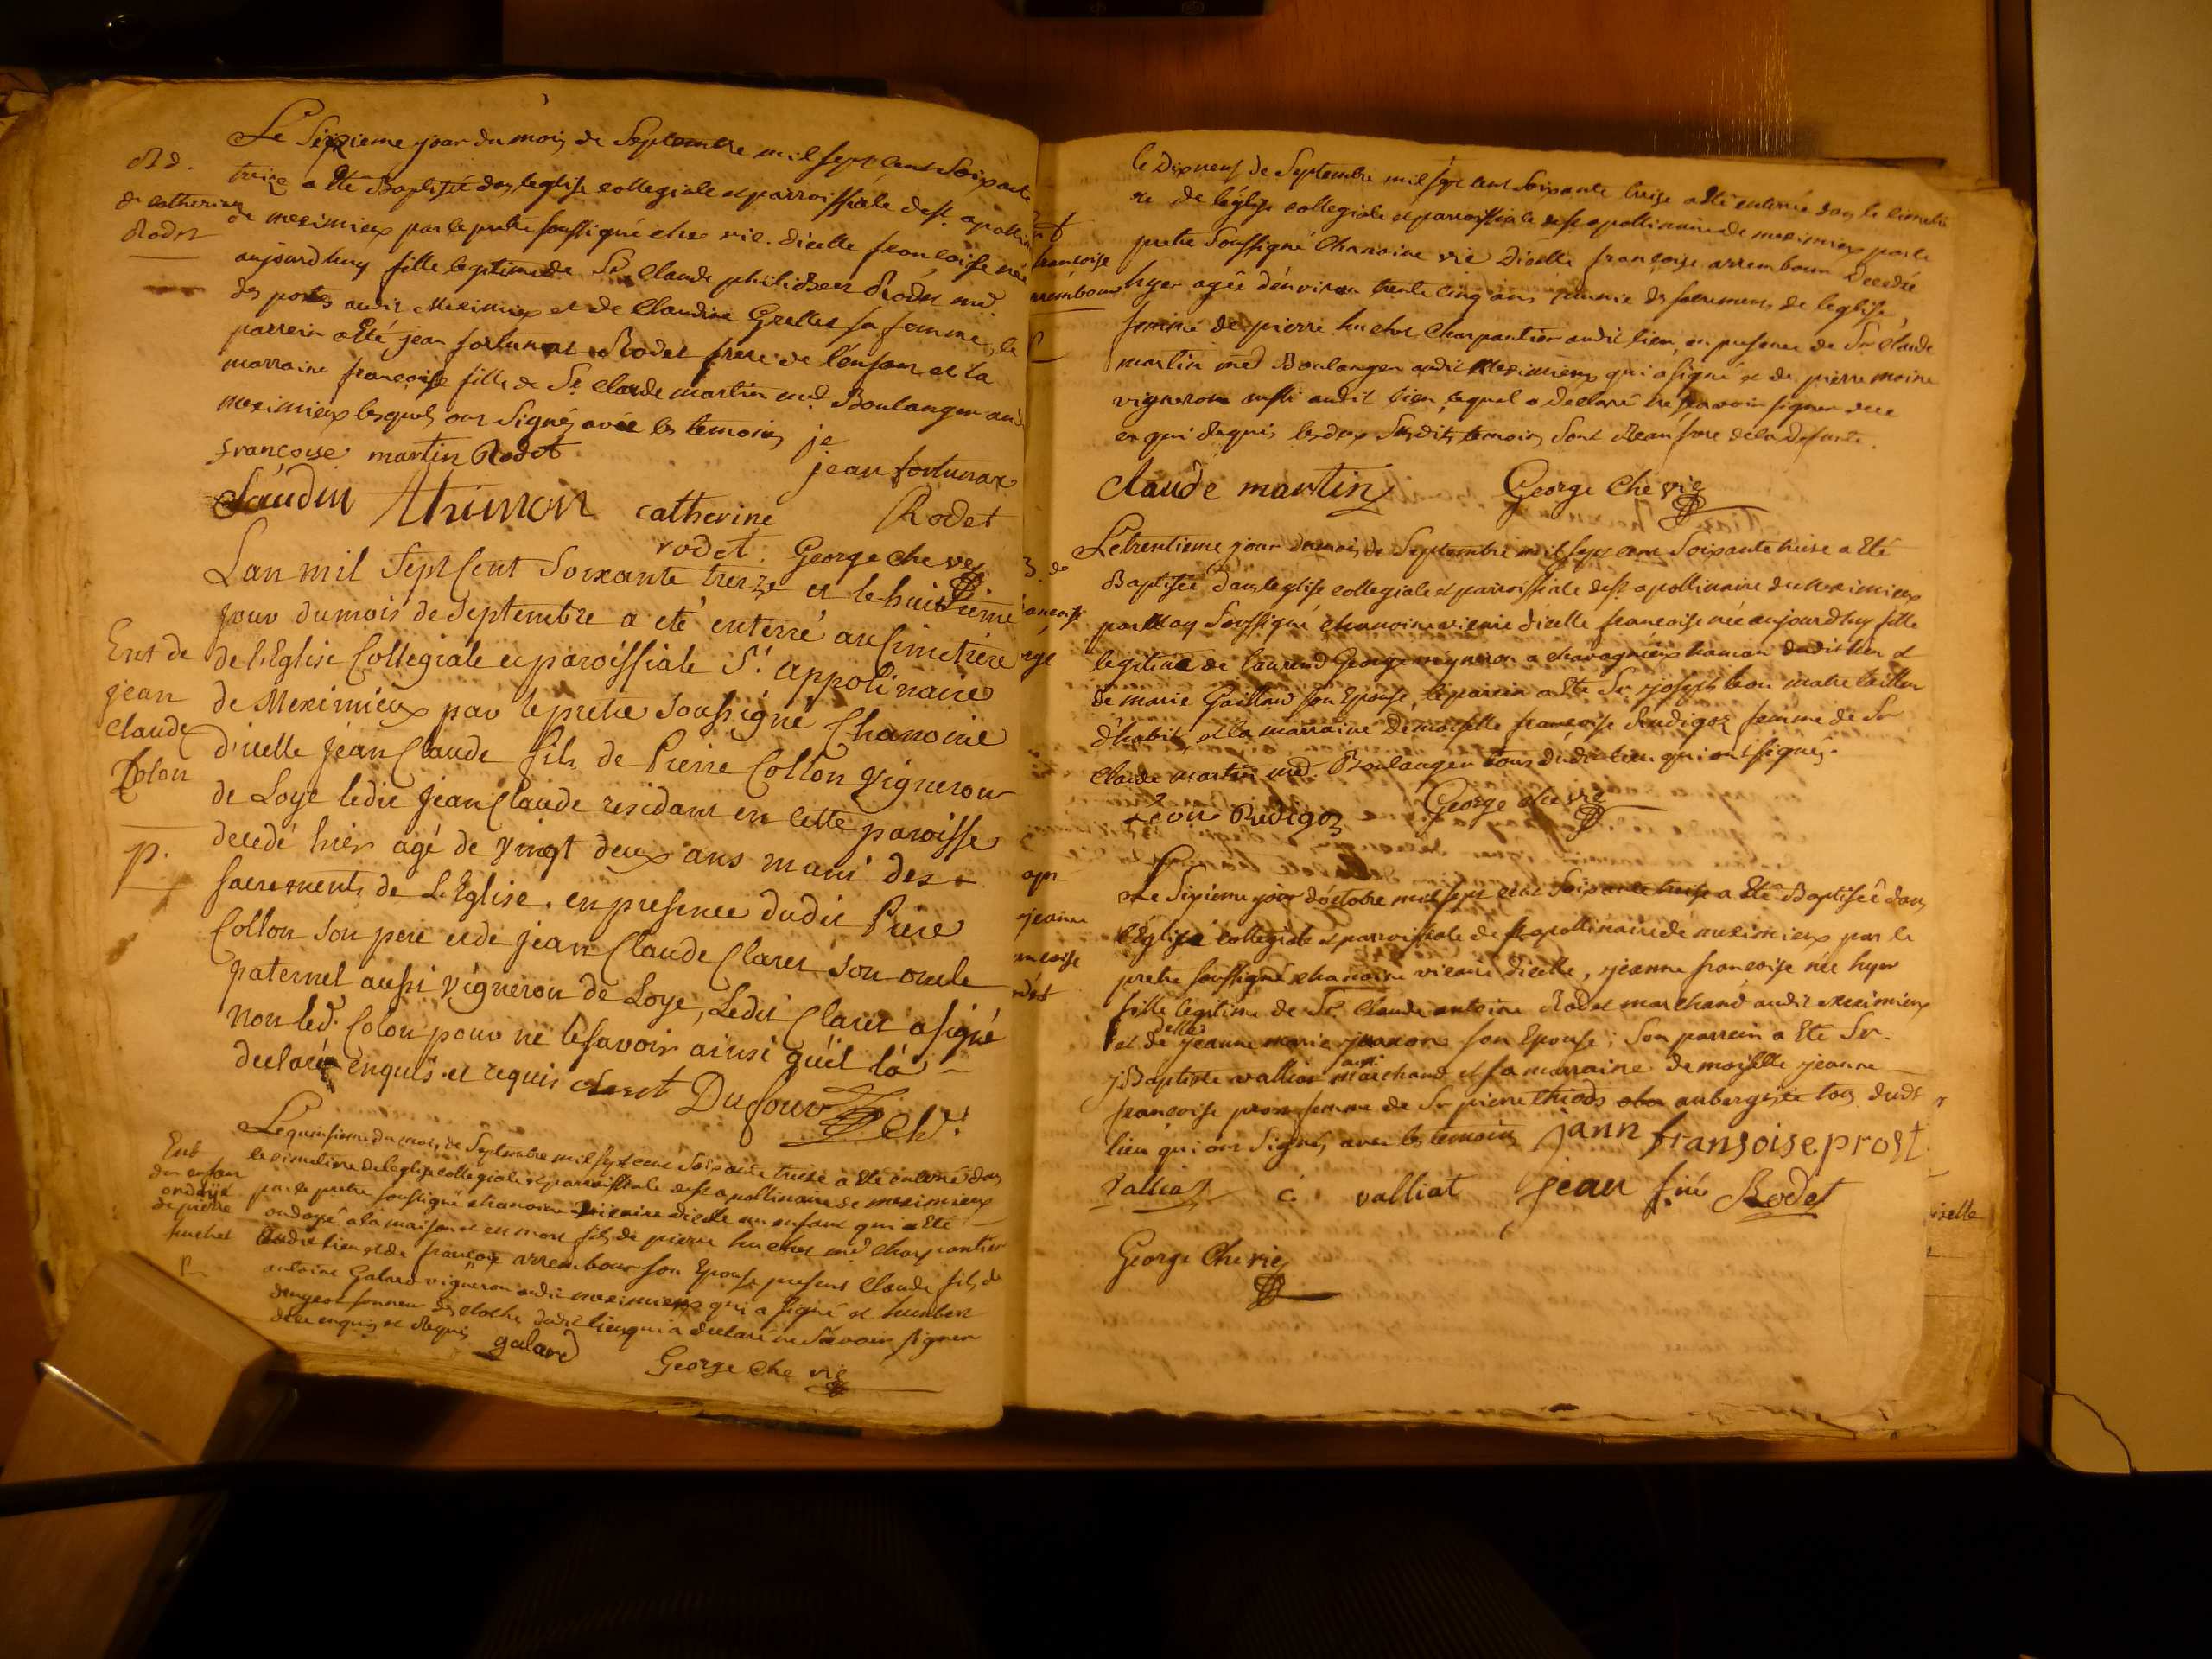 Le Sixieme jour du mois de Septembre mil sept cent Soixante
treize a Eté Baptisée dans leglise collegiale et parroissiale de st. apollinaire
de meximieux par le pretre soussigné che vic. dicelle francoise née
aujourdhuy fille legitime de Sr. Claude philibert Rodet md.
des portes audit Meximieux et de Claudine Grellet sa femme, le
parrein a Eté jean fortunat Rodet frere de l'enfant et la
marraine françoise fille de Sr. Claude martin md. Boulanger aud.
meximieux lesquels ont Signés avec les temoins
je
françoise martin Rodet
jean fortunat
Rodet
Claudin thimon catherine
rodet George che vic
Bd.
de catherine
Rodet
Lan mil Sept Cent Soixante treize et le huitieme
jour du mois de Septembre a eté enterré au Cimetiere
de l'Eglise Collegiale et paroissiale St. appolinaire
de Meximieux par le pretre Soussigné Chanoine
d'icelle Jean Claude fils de Pierre Collon Vigneron
de Loye ledit Jean Claude residant en cette paroisse
decedé hier agé de Vingt deux ans muni des
sacrements de L'Eglise. en presence dudit Piere
Collon Son pere et de jean Claude Claret son oncle
paternel aussi Vigneron de Loye, Ledit Claret a signé
non led. Colon pour ne le savoir ainsi qu'il l'a
declaré Enquis et requis claret Dufour
ch.
Ent de
jean
Claude
Colon
p.
Le quinsieme du mois de Septembre mil sept cent Soixante treise a Eté enterré dans
le cimetiere de leglise collegiale et parroissiale de st apollinaire de meximieux
par le pretre soussigné chanoine vicaire dicelle un enfant qui a Eté
ondoyé a la maison et en mort fils de pierre huchet md charpantier
audit lieu et de françoise arrembour son Epouse, present Claude fils de
antoine Galard vigneron audit meximieux qui a signé et humbert
dangeot sonneur des cloches dudit lieu qui a declaré ne sávoir signer
dece enquis et Requis
galard
George Che vic
Ent
d'un enfant
ondoyé
de pierre
huchet
p.
le Dixneuf de Septembre mil sept cent Soixante treise a Eté enterrée dans le cimetie
re de léglise collegiale et parroissiale de st apollinaire de meximieux par le
pretre Soussigné Chanoine vic Dicelle françoise arrembour Decedée
hyer agée d'environ trente cinq ans munie des sacremens de leglise,
femme de pierre huchet charpantier audit lieu, en presence de Sr Claude
martin md Boulanger audit Meximieux qui a signé et de pierre moine
vigneron aussi audit lieu, lequel a Declaré ne scavoir signer dece
et qui Requis les deux Susdits temoins Sont Beau frere de la Defunte.
Claude martin George Che vic
Le trentieme jour du mois de Septembre mil sept cent Soixante treise a Eté
Baptisée dans leglise collegiale et parroissiale de st apollinaire de Meximieux
par Moy Soussigné chanoine vicaire dicelle francoise née aujourdhuy fille
legitime de Laurend George vigneron a chavagnieux hameau dudit lieu et
de marie Gaillard son Epouse, le parein a Eté Sr. joseph leon maitre tailleur
d'habits, et la marraine Demoiselle françoise Rudigoz femme de Sr
Claude martin md. Boulanger tous dudit lieu qui ont signés.
Leon Rudigoz George che vic
Le Sixieme jour d'octobre mil sept cent Soixante treise a Eté Baptisée dans
l'Eglise collegiale et parroissiale de st apollinaire de meximieux par le
pretre soussigné chanoine vicaire dicelle, jeanne francoise née hyer
fille legitime de Sr. Claude antoine Rodet marchand audit meximieux
et de delle jeanne marie juanon son Epouse; Son parrein a Eté Sr.
jBaptiste valliat aussi marchand et sa marraine demoiselle jeanne
françoise prost femme de Sr pierre thiods aubergiste tous dudt
lieu qui ont Signés avec les temoins jann fransoise prost
Valliat c valliat jean Rodet
George Che vic